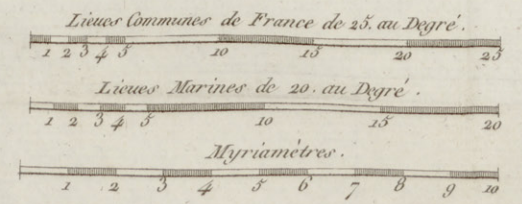 Lieues Communes de France de 25. au Degré.
1 2 3 4 5 10 15 20 25
Lieues Marines de 20. au Degré.
1 2 3 4 5 10 15 20
Myriamètres.
1 2 3 4 5 6 7 8 9 10